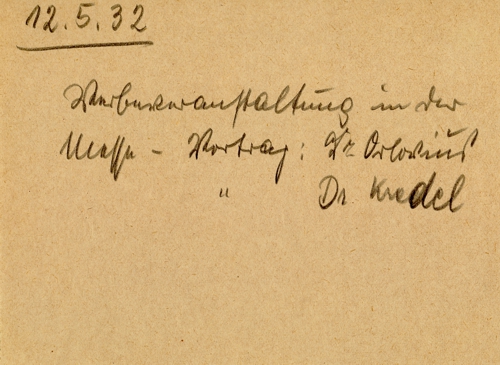 12.5.32
Werbeveranstaltung in der
Messe - Vortrag: Dr Orlovius
" Dr Kredel